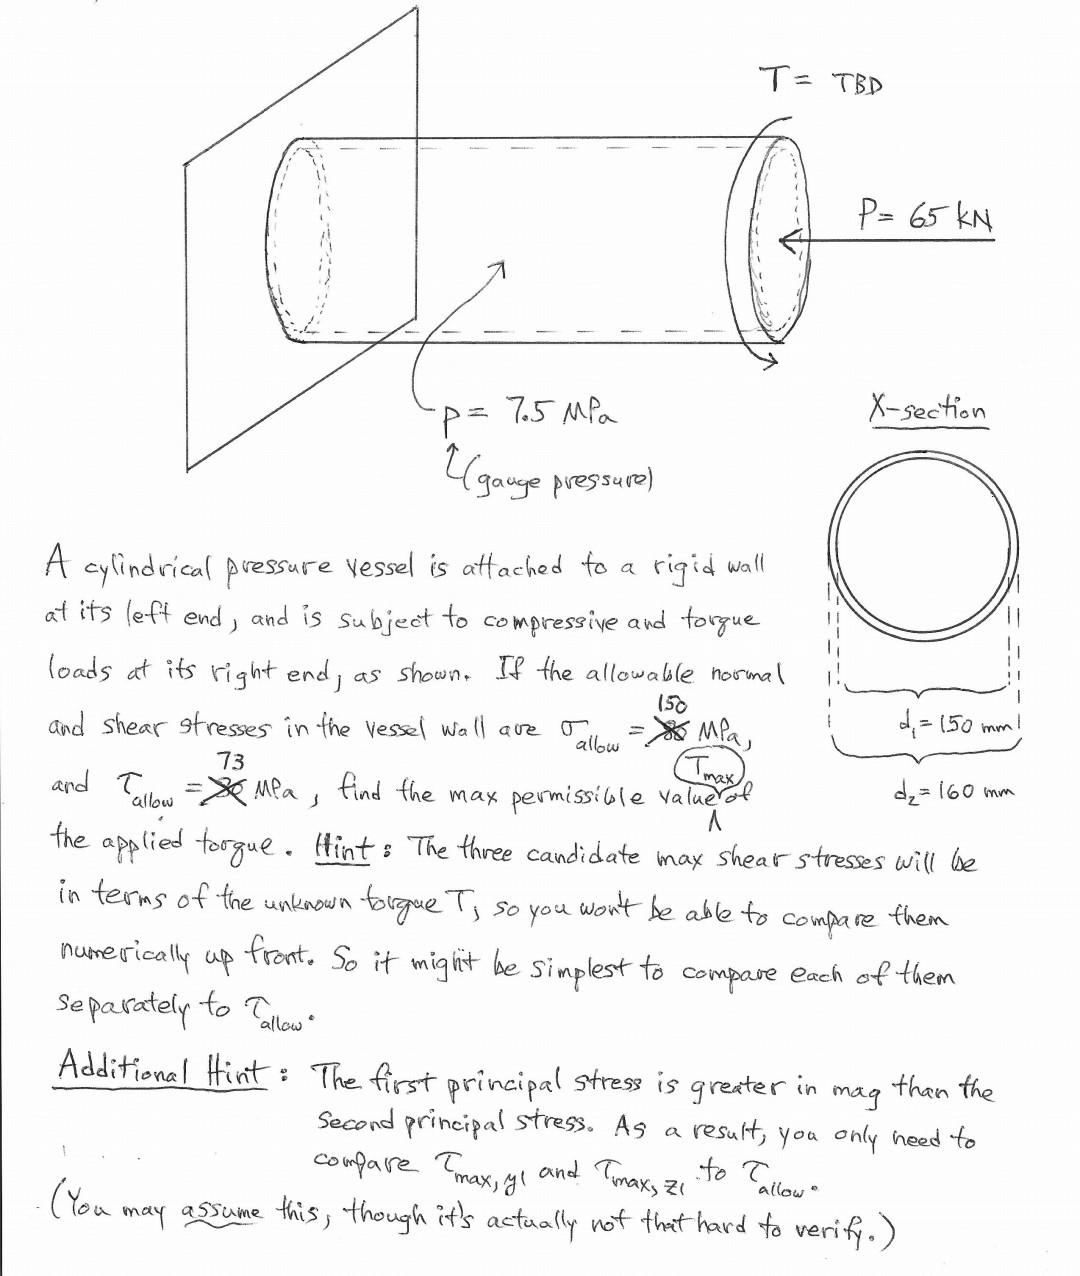 T = TBD
P = 65 kN
p = 7.5 MPa
(gauge pressure)
X-section
d₁ = 150 mm
d₂ = 160 mm
A cylindrical pressure vessel is attached to a rigid wall
at its left end, and is subject to compressive and torque
loads at its right end, as shown. If the allowable normal
150
and shear stresses in the vessel wall are σ_allow = MPa,
73
and τ_allow = MPa, find the max permissible value T_max of
the applied torque. Hint: The three candidate max shear stresses will be
in terms of the unknown torque T, so you won't be able to compare them
numerically up front. So it might be simplest to compare each of them
separately to τ_allow.
Additional Hint: The first principal stress is greater in mag than the
second principal stress. As a result, you only need to
compare τ_max,y1 and τ_max,z1 to τ_allow.
(You may assume this, though it's actually not that hard to verify.)